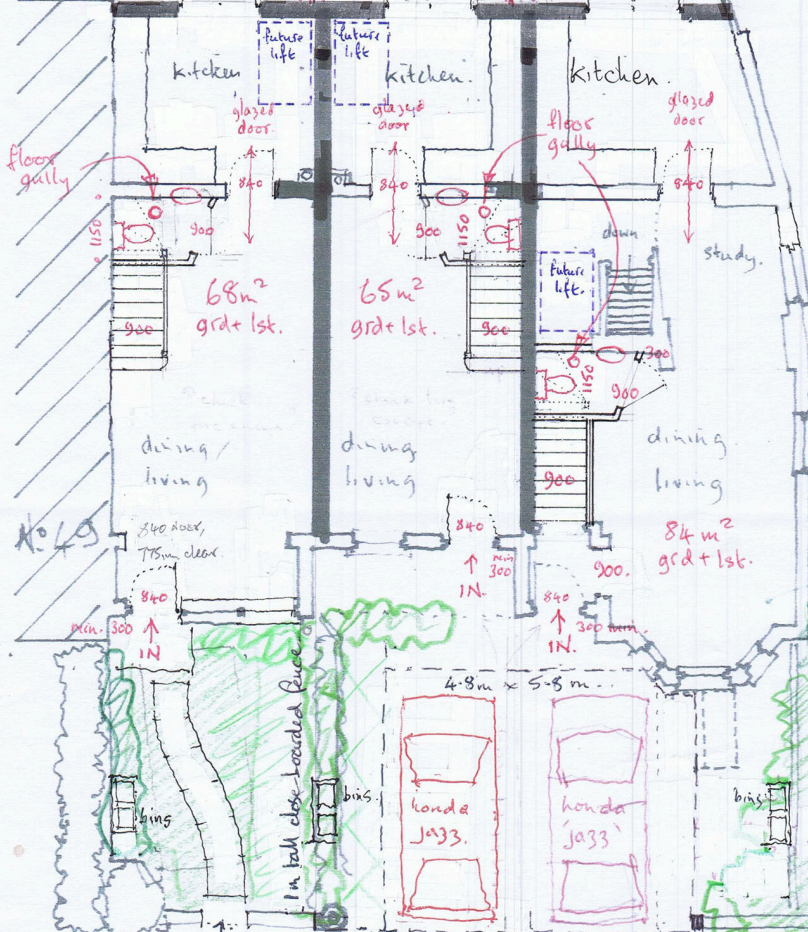 future
lift
future
lift
kitchen
kitchen.
kitchen.
glazed
door.
glazed
door
glazed
door
floor
gully
floor
gully
840
840
840
1150
900
900
1150
down
study.
future
lift.
68m²
grd + 1st.
65m²
grd + 1st.
900
900
300
1150
900
dining/
living
dining
living
dining
living
900
No 49
840 door,
775mm clear.
840
84 m²
grd + 1st.
min
300
IN.
900.
840
840
min. 300
IN
300 min.
IN.
4.8m x 5.8m.
1m tall close boarded fence
bins
bins.
bins
honda
jazz.
honda
jazz